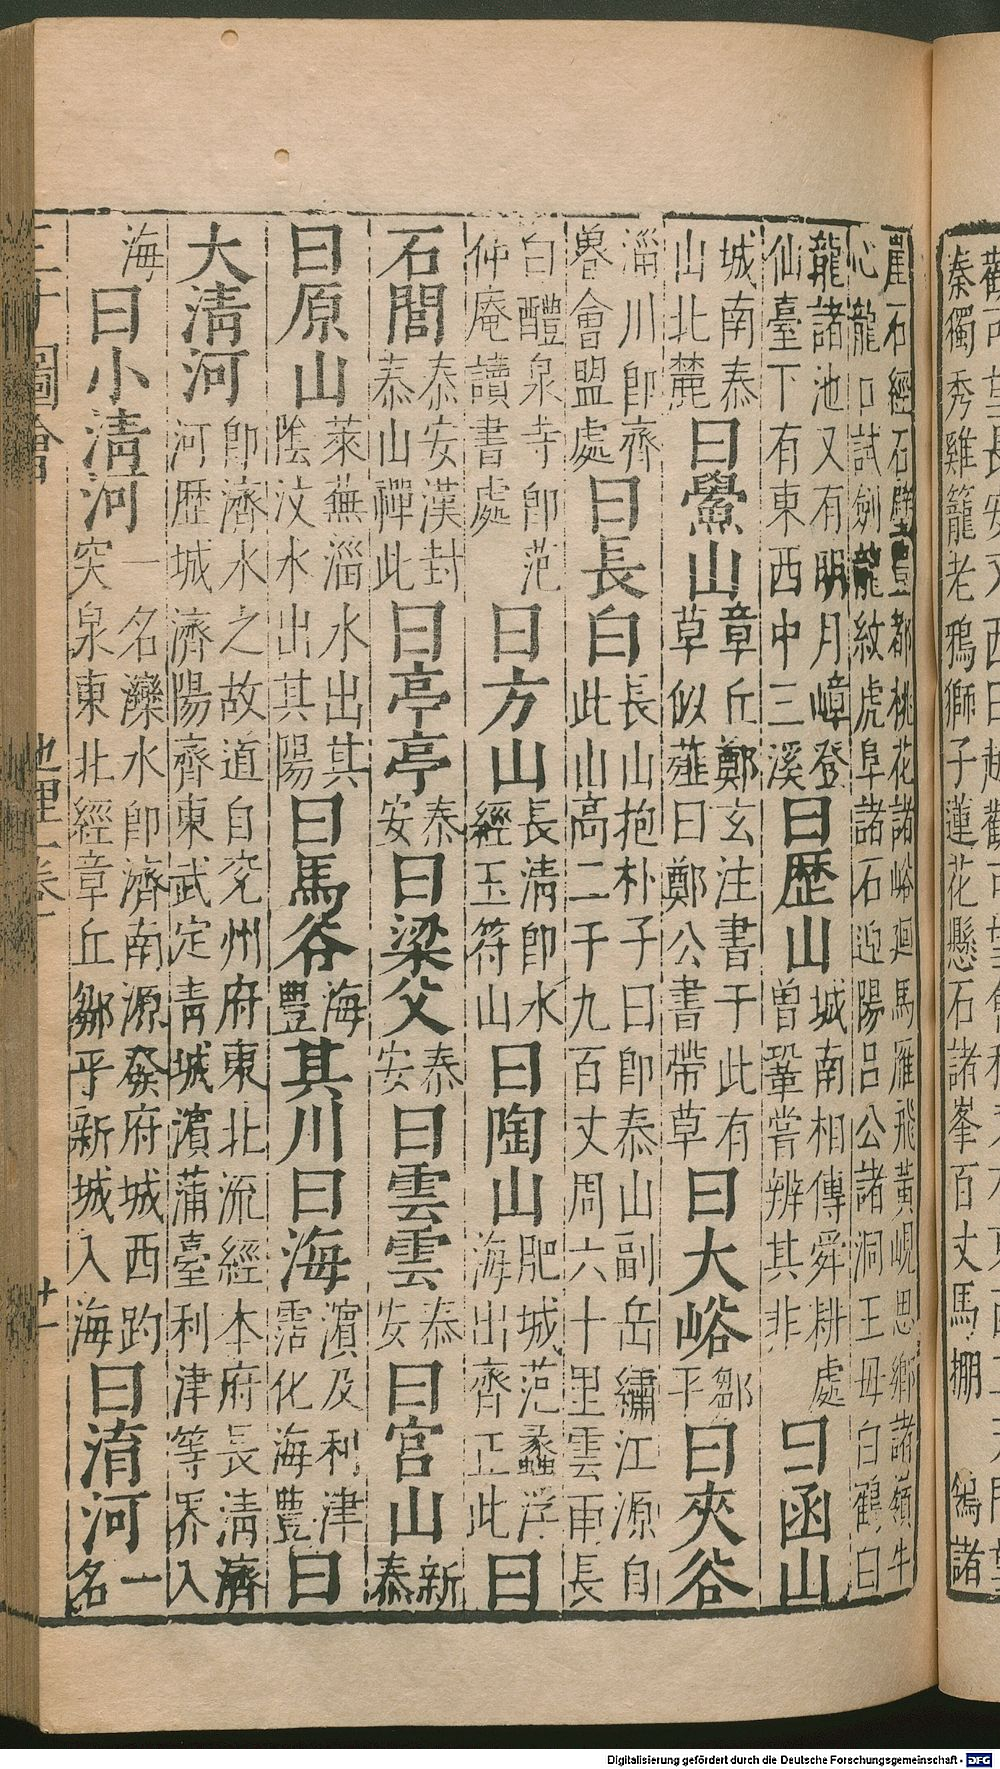 秦獨秀雞籠老鴉獅子蓮花懸石諸峯百丈馬棚
崖石經石壁豊都桃花諸峪廻馬雁飛黃峴思鄉諸嶺牛心龍口試劍龍紋虎阜諸石迎陽呂公諸洞王母白鶴白
龍諸池又有明月嶂登仙臺下有東西中三溪曰歷山城南相傳舜耕處曾鞏嘗辨其非曰函山
城南泰山北麓曰鱟山章丘鄭玄注書于此有草似薤曰鄭公書帶草曰大峪鄒平曰夾谷
淄川卽齊魯會盟處曰長白長山抱朴子曰卽泰山副岳繡江源自此山高二千九百丈周六十里雲雨長
白醴泉寺卽范仲庵讀書處曰方山長淸卽水經玉符山曰陶山肥城范蠡浮海出齊正此曰
石閭泰安漢封泰山禪此曰亭亭泰安曰梁父泰安曰雲雲泰安曰宮山新泰
曰原山萊蕪淄水出其陰汶水出其陽曰馬谷海豐其川曰海濵及利津霑化海豐曰
大淸河卽濟水之故道自兗州府東北流經本府長淸濟河歷城濟陽齊東武定靑城濵蒲臺利津等界入
海曰小淸河一名濼水卽濟南源發府城西趵突泉東北經章丘鄒平新城入海曰淯河一名
圖會 地理
Digitalisierung gefördert durch die Deutsche Forschungsgemeinschaft - DFG